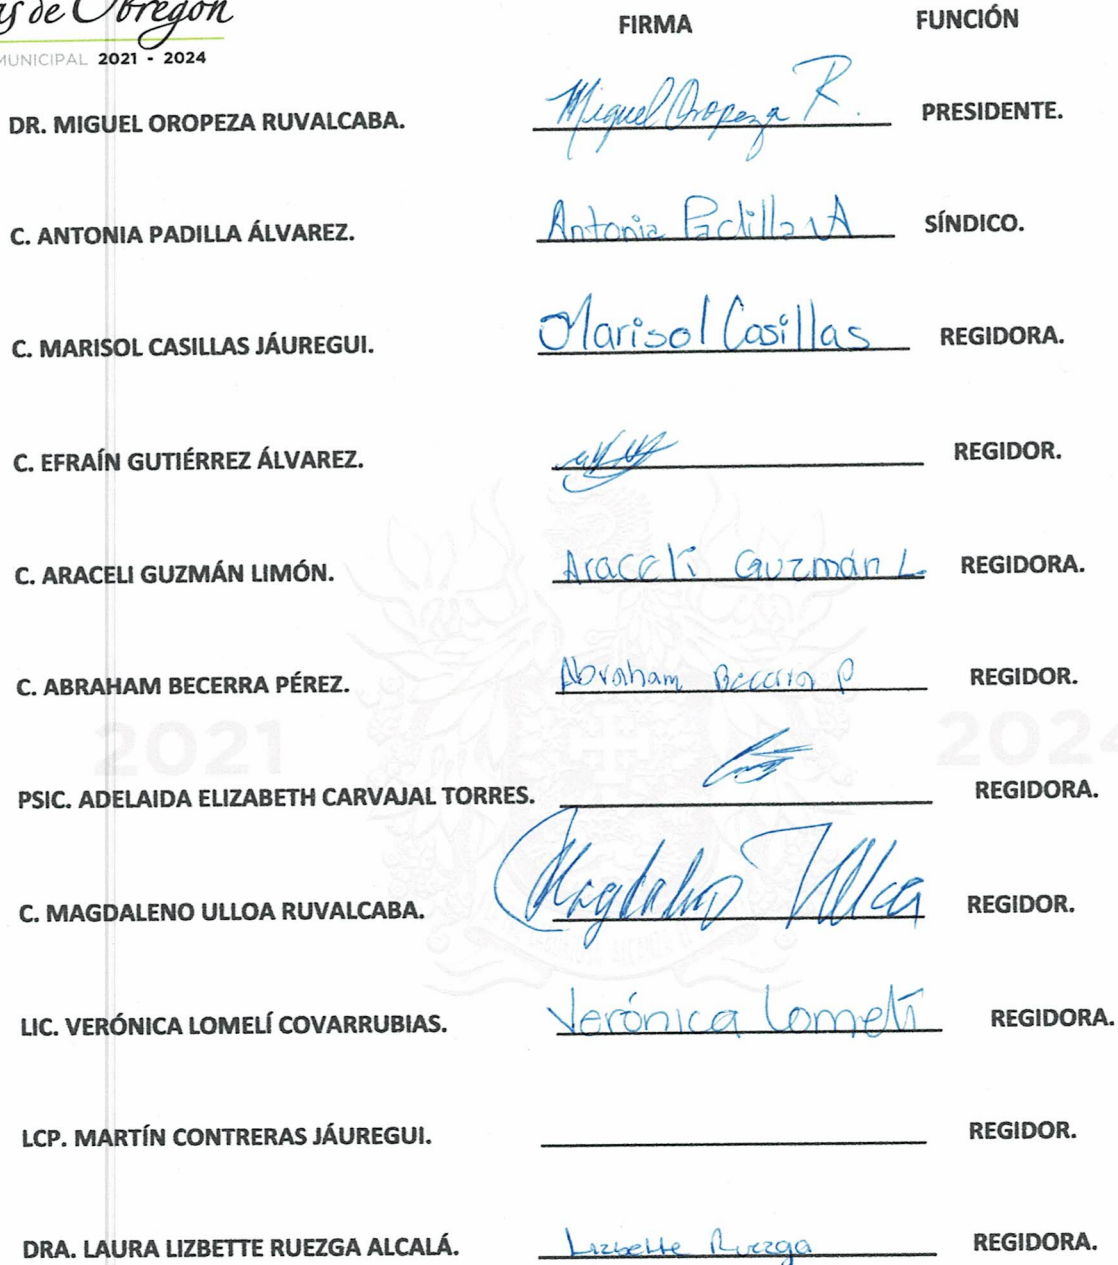 as de Obregón
MUNICIPAL 2021 - 2024
FIRMA FUNCIÓN
DR. MIGUEL OROPEZA RUVALCABA. Miguel Oropeza R. PRESIDENTE.
C. ANTONIA PADILLA ÁLVAREZ. Antonia Padilla A SÍNDICO.
C. MARISOL CASILLAS JÁUREGUI. Marisol Casillas REGIDORA.
C. EFRAÍN GUTIÉRREZ ÁLVAREZ. REGIDOR.
C. ARACELI GUZMÁN LIMÓN. Araceli Guzmán L. REGIDORA.
C. ABRAHAM BECERRA PÉREZ. Abraham Becerra P REGIDOR.
2021 2024
PSIC. ADELAIDA ELIZABETH CARVAJAL TORRES. REGIDORA.
C. MAGDALENO ULLOA RUVALCABA. Magdaleno Ulloa REGIDOR.
LIC. VERÓNICA LOMELÍ COVARRUBIAS. Verónica Lomelí REGIDORA.
LCP. MARTÍN CONTRERAS JÁUREGUI. REGIDOR.
DRA. LAURA LIZBETTE RUEZGA ALCALÁ. Lizbette Ruezga REGIDORA.